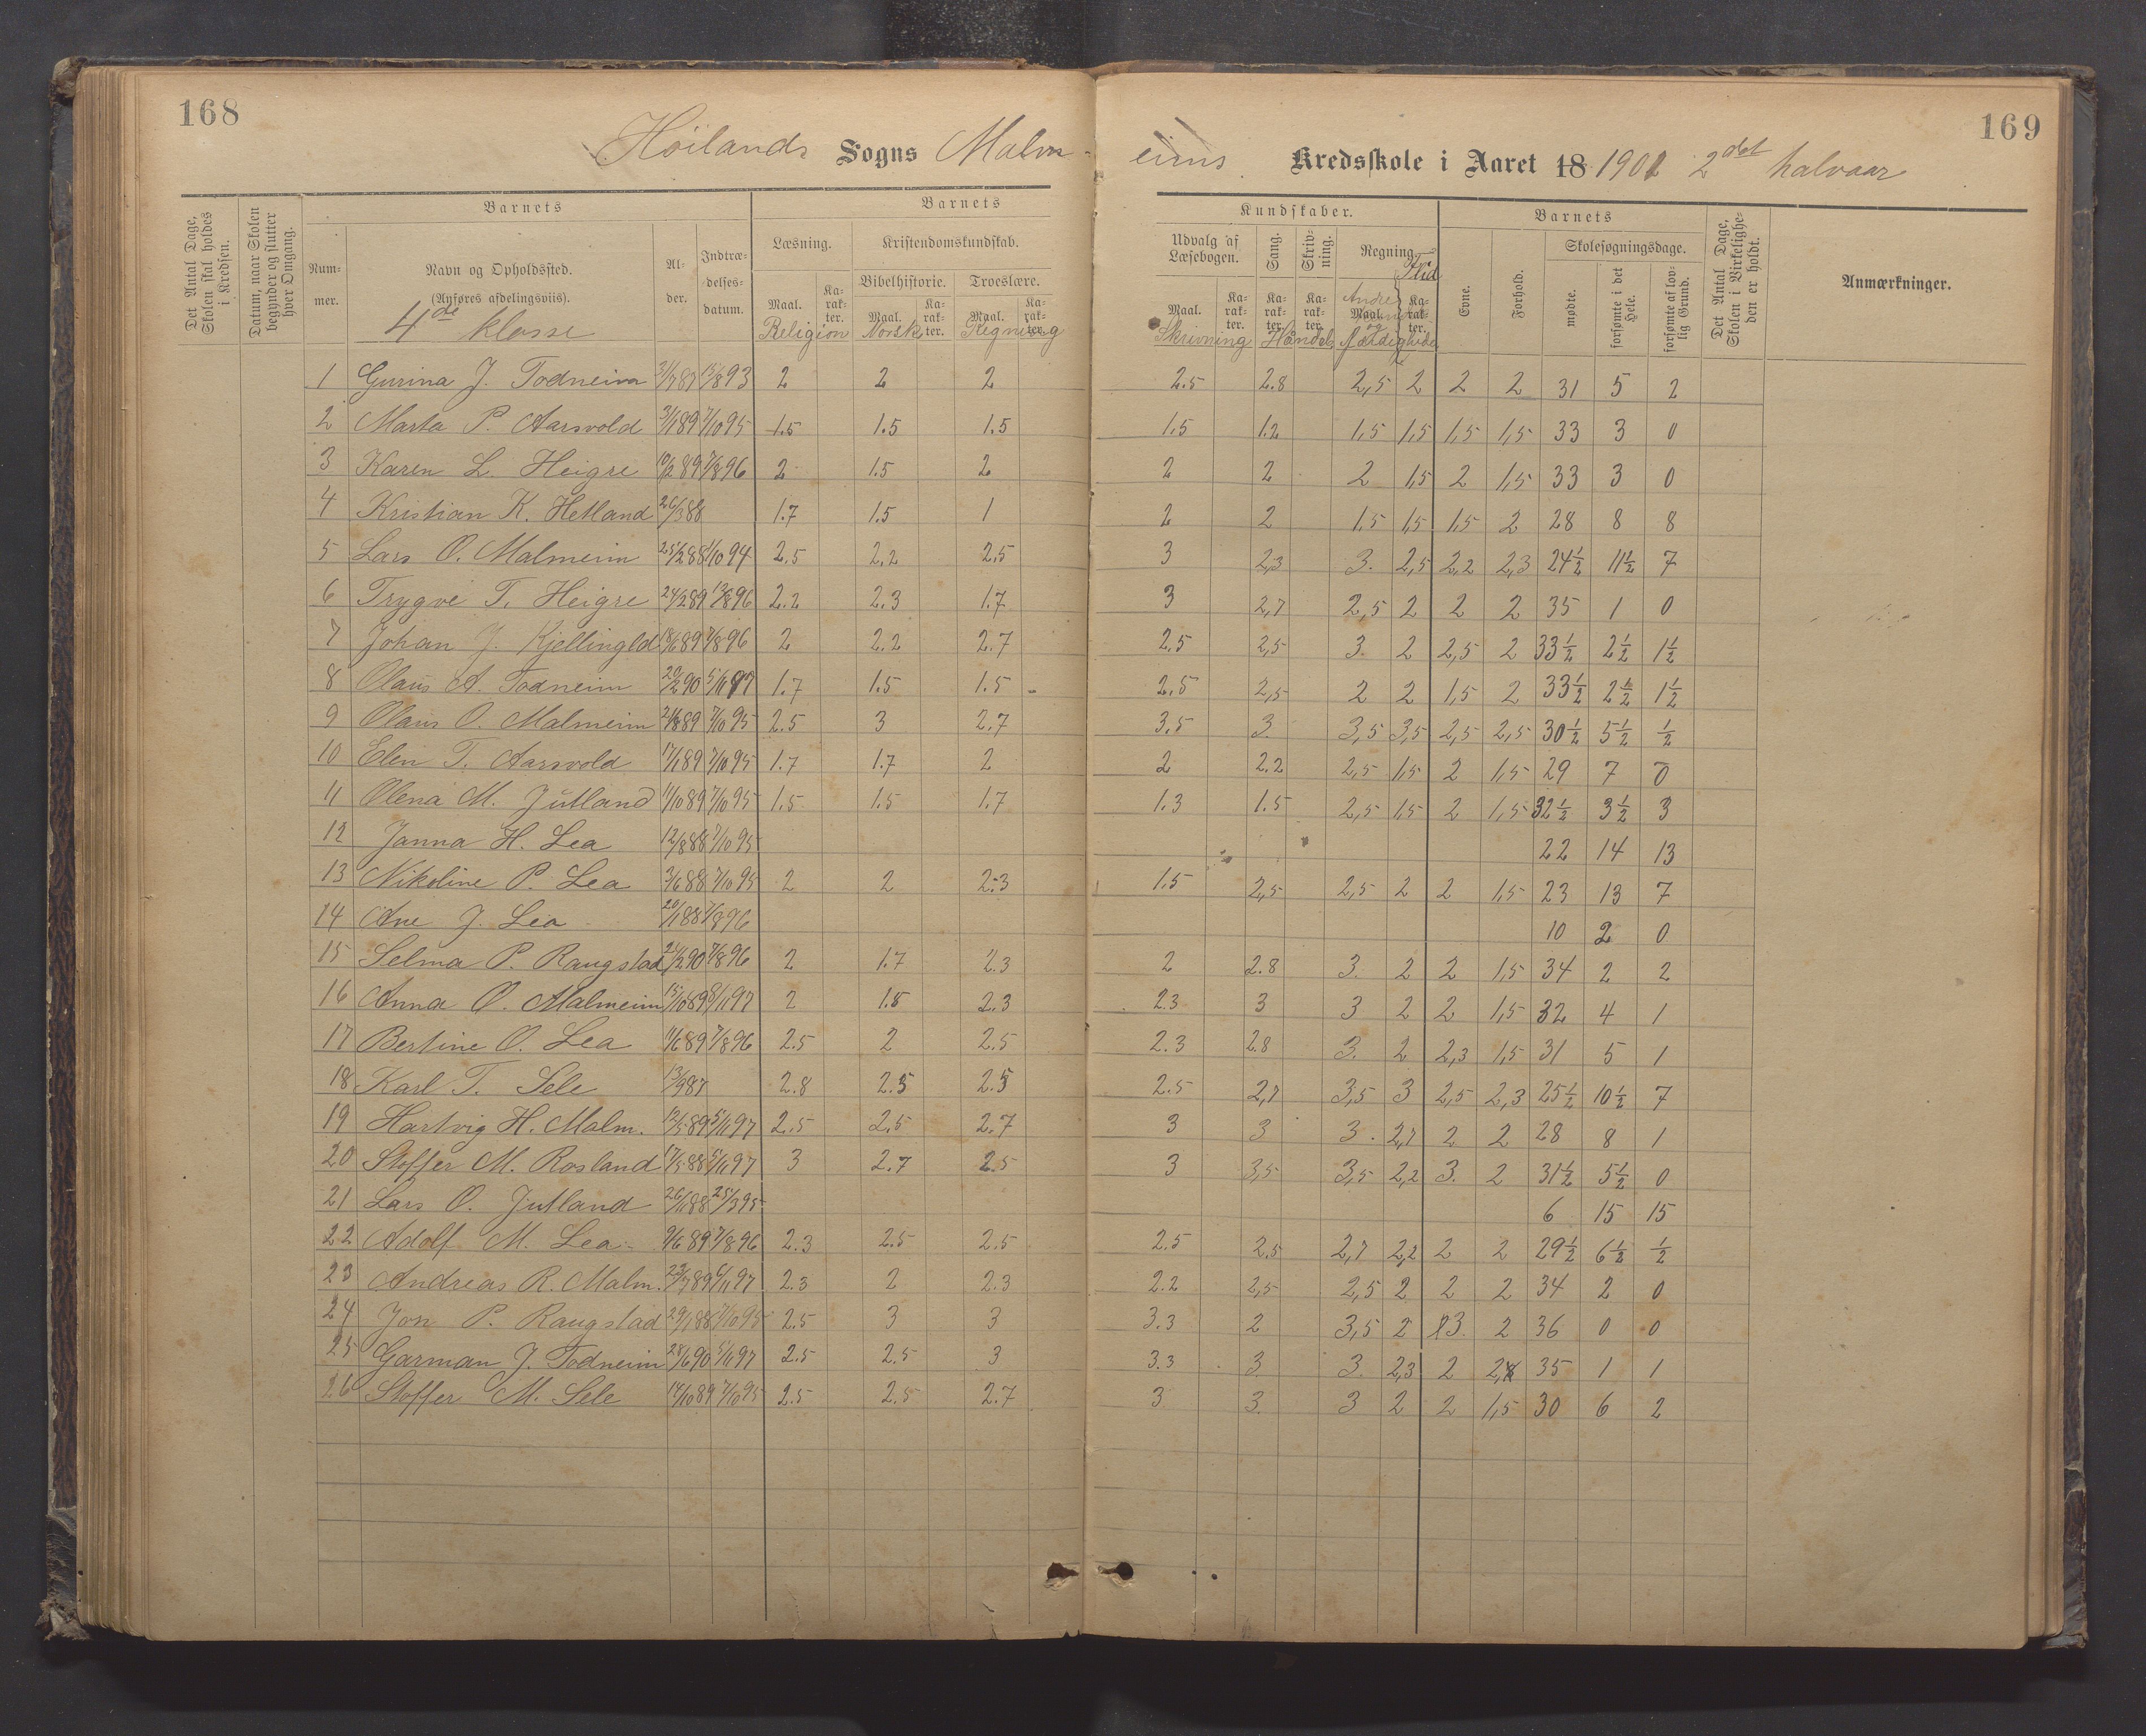 168
169
Höilands Sogns Malm-
eims Kredsskole i Aaret 18 1901 2det halvaar
Det Antal Dage, Skolen skal holdes i Kredsen.
Datum, naar Skolen begynder og slutter hver Omgang.
Barnets
Nummer.
Navn og Opholdssted.
(Anføres afdelingsviis).
4de klasse
Alder.
Indtrædelsesdatum.
Barnets
Læsning.
Maal. Karakter.
Religion
Kristendomskundskab.
Bibelhistorie.
Maal. Karakter.
Norsk
Troeslære.
Maal. Karakter.
Regning
Kundskaber.
Udvalg af Læsebogen.
Maal. Karakter.
Skrivning
Sang.
Karakter.
Skrivning.
Karakter.
Håndels færdigheder
Regning.
Maal. Karakter.
Andre
og
Flid
Barnets
Evne.
Forhold.
Skolesøgningsdage.
mødte.
forsømte i det Hele.
forsømte af lovlig Grund.
Det Antal Dage, Skolen i Virkeligheden er holdt.
Anmærkninger.
1 Gurina J. Todneim 21/7 87 15/8 93 2 2 2 2.5 2.8 2,5 2 2 2 31 5 2
2 Marta P. Aarsvold 31/1 89 7/10 95 1.5 1.5 1.5 1.5 1.2 1,5 1,5 1,5 1,5 33 3 0
3 Karen L. Heigre 10/2 89 7/8 96 2 1.5 2 2 2 2 1,5 2 1,5 33 3 0
4 Kristian K. Hetland 26/3 88 1.7 1.5 1 2 2 1,5 1,5 1,5 2 28 8 8
5 Lars O. Malmeim 25/2 88 1/10 94 2.5 2.2 2.5 3 2,3 3. 2,5 2,2 2,3 24½ 11½ 7
6 Trygve T. Heigre 24/2 89 13/8 96 2.2 2.3 1.7 3 2,7 2,5 2 2 2 35 1 0
7 Johan J. Kjellingld 18/6 89 7/8 96 2 2.2 2.7 2.5 2,5 3. 2 2,5 2 33½ 2½ 1½
8 Olaus A. Todneim 20/2 90 5/11 97 1.7 1.5 1.5 2.5 2,5 2 2 1,5 2 33½ 2½ 1½
9 Olaus O. Malmeim 21/8 89 7/10 95 2.5 3 2.7 3.5 3. 3,5 3,5 2,5 2,5 30½ 5½ ½
10 Elin T. Aarsvold 17/1 89 7/10 95 1.7 1.7 2 2 2.2 2,5 1,5 2 1,5 29 7 0
11 Olena M. Jutland 11/10 89 7/10 95 1.5 1.5 1.7 1.3 1.5 2,5 1,5 2 1,5 32½ 3½ 3
12 Janna H. Lea 12/8 88 7/10 95 22 14 13
13 Nikoline P. Lea 3/6 88 7/10 95 2 2 2.3 1.5 2,5 2,5 2 2 1,5 23 13 7
14 Ane J. Lea 20/1 88 7/8 96 10 2 0
15 Selma P. Raugstad 21/2 90 7/8 96 2 1.7 2.3 2 2.8 3. 2 2 1,5 34 2 2
16 Anna O. Malmeim 15/10 89 8/11 97 2 1.8 2.3 2.3 3 3 2 2 1,5 32 4 1
17 Bertine O. Lea 11/6 89 7/8 96 2.5 2 2.5 2.3 2.8 3. 2 2,3 1,5 31 5 1
18 Karl T. Sele 13/9 87 2.8 2.5 2.5 2.5 2,7 3,5 3 2,5 2,3 25½ 10½ 7
19 Hartvig H. Malm. 12/5 89 5/11 97 2.5 2,5 2.7 3 3 3. 2,7 2 2 28 8 1
20 Stoffer M. Rosland 17/5 88 5/11 97 3 2.7 2.5 3 3,5 3,5 2,2 3. 2 31½ 5½ 0
21 Lars O. Jutland 26/11 88 25/3 95 6 15 15
22 Adolf M. Lea 9/6 89 7/8 96 2.3 2.5 2.5 2.5 2.5 2,7 2,2 2 2 29½ 6½ ½
23 Andreas R. Malm. 23/7 89 6/11 97 2.3 2 2.3 2.2 2,5 2,5 2 2 2 34 2 0
24 Jon P. Raugstad 29/1 88 7/10 95 2.5 3 3 3.3 2 3,5 2 3. 2 36 0 0
25 Garman J. Todneim 28/6 90 5/11 97 2.5 2.5 3 3.3 3. 3. 2,3 2 2 35 1 1
26 Stoffer M. Sele 14/10 89 7/10 95 2.5 2.5 2.7 3 3. 3 2 2 1,5 30 6 2